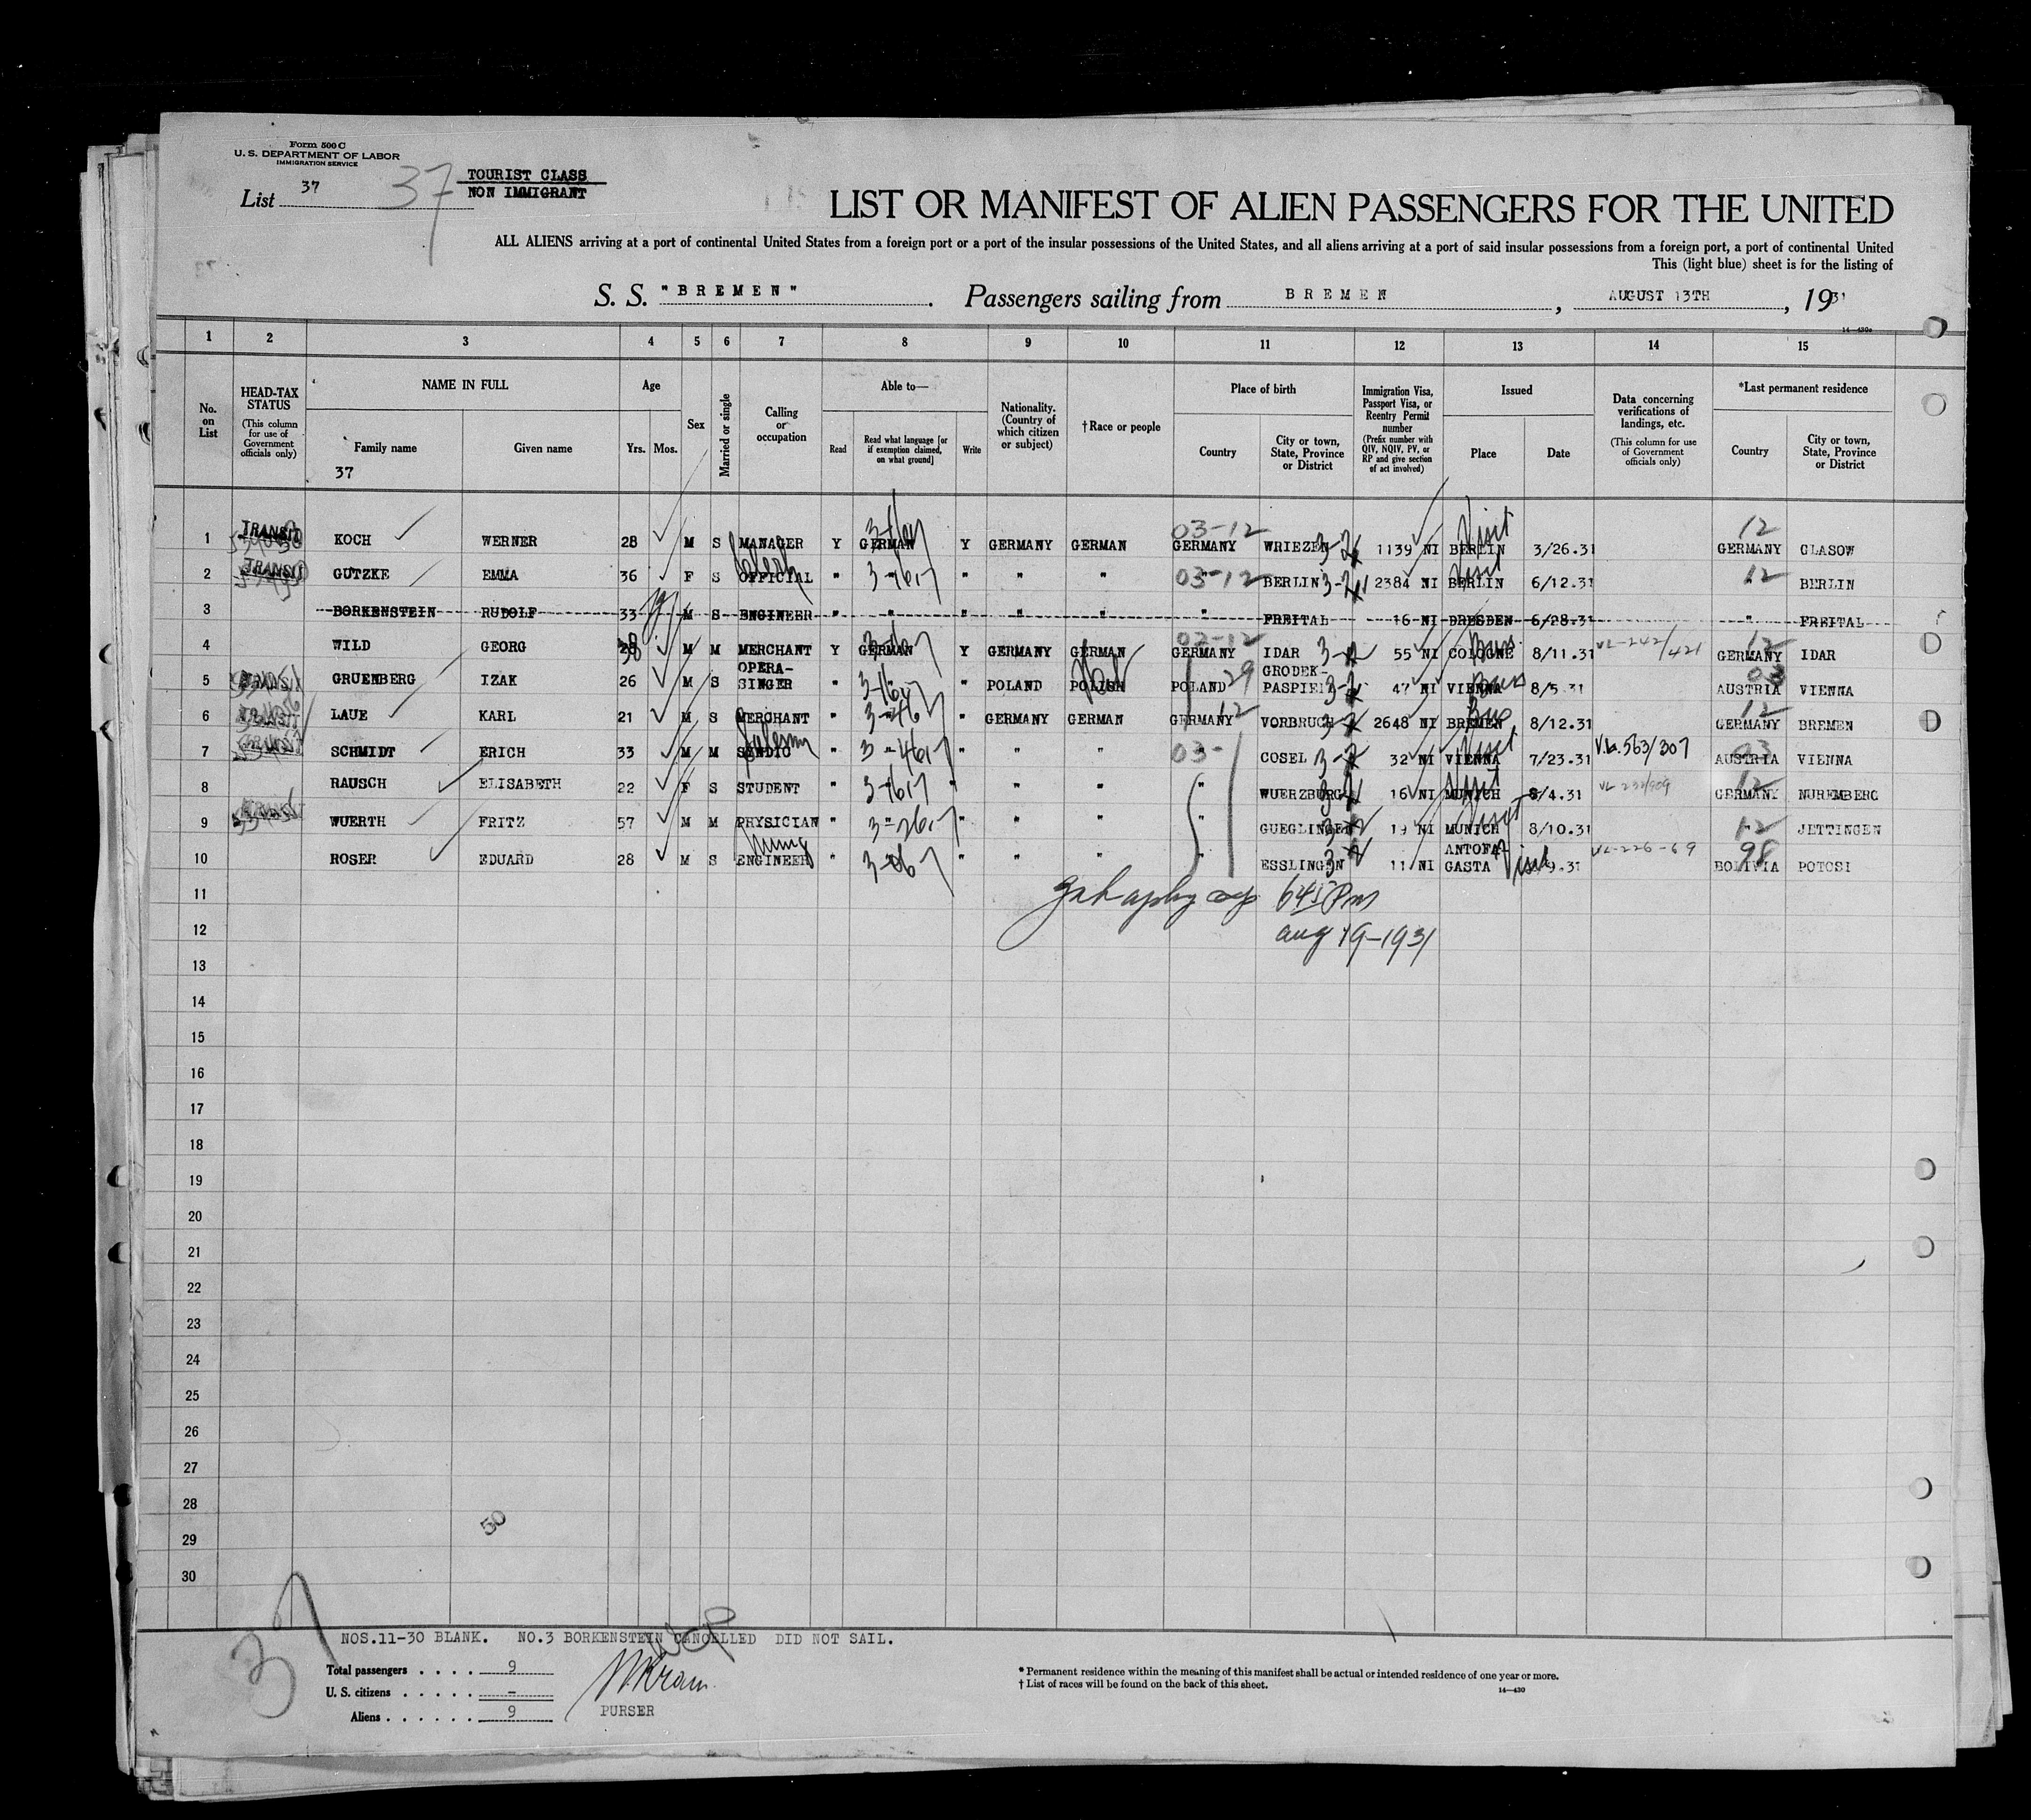 Form 500 C
U. S. DEPARTMENT OF LABOR
IMMIGRATION SERVICE
List 37
37
TOURIST CLASS
NON IMMIGRANT
LIST OR MANIFEST OF ALIEN PASSENGERS FOR THE UNITED
ALL ALIENS arriving at a port of continental United States from a foreign port or a port of the insular possessions of the United States, and all aliens arriving at a port of said insular possessions from a foreign port, a port of continental United
This (light blue) sheet is for the listing of
S. S. "BREMEN". Passengers sailing from BREMEN, AUGUST 13TH, 1931
14—430a
1 2 3 4 5 6 7 8 9 10 11 12 13 14 15
No. on List
HEAD-TAX STATUS
(This column for use of Government officials only)
NAME IN FULL
Family name
Given name
37
Age
Yrs. Mos.
Sex
Married or single
Calling or occupation
Able to—
Read
Read what language [or if exemption claimed, on what ground]
Write
Nationality. (Country of which citizen or subject)
†Race or people
Place of birth
Country
City or town, State, Province or District
Immigration Visa, Passport Visa, or Reentry Permit number
(Prefix number with QIV, NQIV, PV, or RP and give section of act involved)
Issued
Place
Date
Data concerning verifications of landings, etc.
(This column for use of Government officials only)
*Last permanent residence
Country
City or town, State, Province or District
1 TRANSIT KOCH WERNER 28 M S MANAGER Y GERMAN Y GERMANY GERMAN 03-12 GERMANY WRIEZEN 1139 NI BERLIN Visit 3/26.31 12 GERMANY GLASOW
2 TRANSIT GUTZKE EMMA 36 F S OFFICIAL Clerk " " " " 03-12 BERLIN 2384 NI BERLIN Visit 6/12.31 12 BERLIN
3 BORKENSTEIN RUDOLF 33 M S ENGINEER " " " " " " FREITAL 16 NI DRESDEN 6/28.31 " FREITAL
4 WILD GEORG 28 38 M M MERCHANT Y GERMAN Y GERMANY GERMAN 03-12 GERMANY IDAR 3-2 55 NI COLOGNE Bus. 8/11.31 VL-242/421 12 GERMANY IDAR
5 TRANSIT GRUENBERG IZAK 26 M S OPERA-SINGER " " " POLAND POLISH POLAND 29 GRODEK-PASPIE 47 NI VIENNA Bus 8/5 31 03 AUSTRIA VIENNA
6 TRANSIT LAUE KARL 21 M S MERCHANT " " GERMANY GERMAN GERMANY 12 VORBRUCH 2648 NI BREMEN Bus 8/12.31 12 GERMANY BREMEN
7 TRANSIT SCHMIDT ERICH 33 M M SYNDIC Salesman " " " " 03- " COSEL 3-2 32 NI VIENNA Visit 7/23.31 V.L.563/307 03 AUSTRIA VIENNA
8 RAUSCH ELISABETH 22 F S STUDENT " " " " " WUERZBURG 16 NI MUNICH Visit 8/4.31 12 GERMANY NUREMBERG
9 TRANSIT WUERTH FRITZ 57 M M PHYSICIAN " " " " " GUEGLINGEN 19 NI MUNICH Visit 8/10.31 12 JETTINGEN
10 ROSER EDUARD 28 M S ENGINEER Mining " " " " " ESSLINGEN 11 NI ANTOFA-GASTA Visit 9.31 VL-226-69 98 BOLIVIA POTOSI
11
645 Pm
12
aug 19-1931
13
14
15
16
17
18
19
20
21
22
23
24
25
26
27
28
50
29
30
37
NOS.11-30 BLANK. NO.3 BORKENSTEIN CANCELLED DID NOT SAIL.
Total passengers . . . . 9
U. S. citizens . . . . . –
Aliens . . . . . . 9
PURSER
* Permanent residence within the meaning of this manifest shall be actual or intended residence of one year or more.
† List of races will be found on the back of this sheet.
14—430